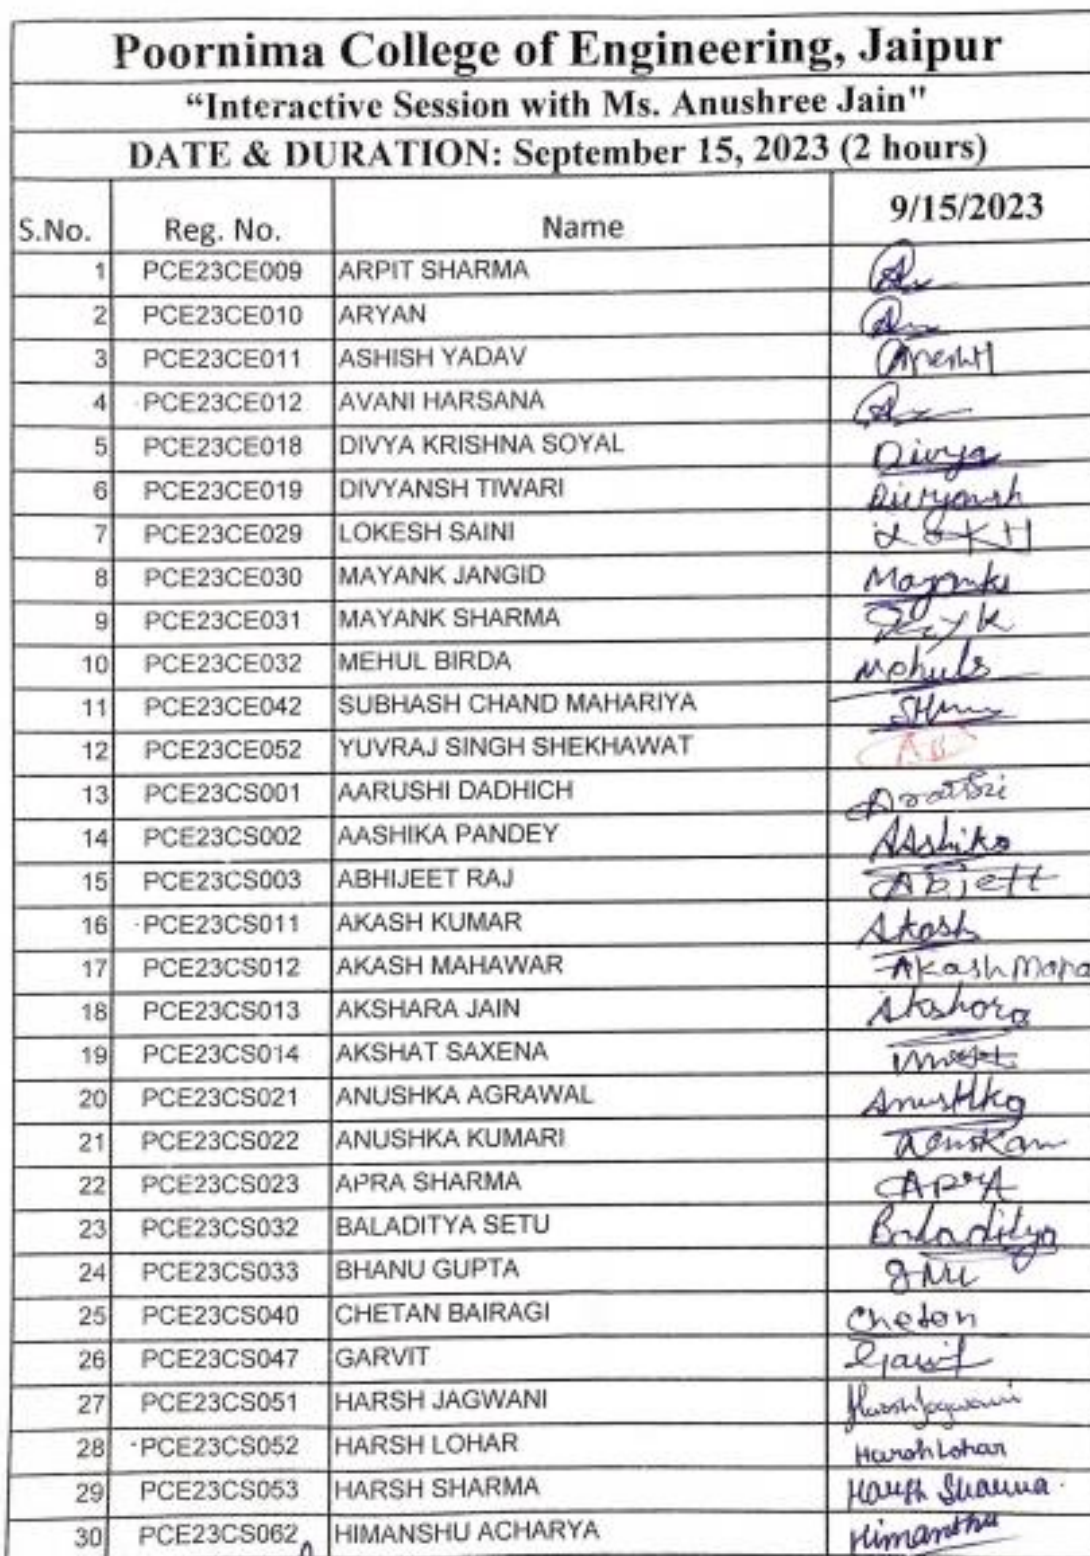 Poornima College of Engineering, Jaipur
“Interactive Session with Ms. Anushree Jain"
DATE & DURATION: September 15, 2023 (2 hours)
S.No. Reg. No. Name 9/15/2023
1 PCE23CE009 ARPIT SHARMA
2 PCE23CE010 ARYAN
3 PCE23CE011 ASHISH YADAV
4 PCE23CE012 AVANI HARSANA
5 PCE23CE018 DIVYA KRISHNA SOYAL Divya
6 PCE23CE019 DIVYANSH TIWARI Divyansh
7 PCE23CE029 LOKESH SAINI
8 PCE23CE030 MAYANK JANGID
9 PCE23CE031 MAYANK SHARMA
10 PCE23CE032 MEHUL BIRDA
11 PCE23CE042 SUBHASH CHAND MAHARIYA
12 PCE23CE052 YUVRAJ SINGH SHEKHAWAT
13 PCE23CS001 AARUSHI DADHICH
14 PCE23CS002 AASHIKA PANDEY
15 PCE23CS003 ABHIJEET RAJ
16 PCE23CS011 AKASH KUMAR Akash
17 PCE23CS012 AKASH MAHAWAR Akash
18 PCE23CS013 AKSHARA JAIN
19 PCE23CS014 AKSHAT SAXENA
20 PCE23CS021 ANUSHKA AGRAWAL
21 PCE23CS022 ANUSHKA KUMARI
22 PCE23CS023 APRA SHARMA
23 PCE23CS032 BALADITYA SETU Baladitya
24 PCE23CS033 BHANU GUPTA
25 PCE23CS040 CHETAN BAIRAGI Chetan
26 PCE23CS047 GARVIT
27 PCE23CS051 HARSH JAGWANI Harsh Jagwani
28 PCE23CS052 HARSH LOHAR Harsh Lohar
29 PCE23CS053 HARSH SHARMA Harsh Sharma
30 PCE23CS062 HIMANSHU ACHARYA Himanshu